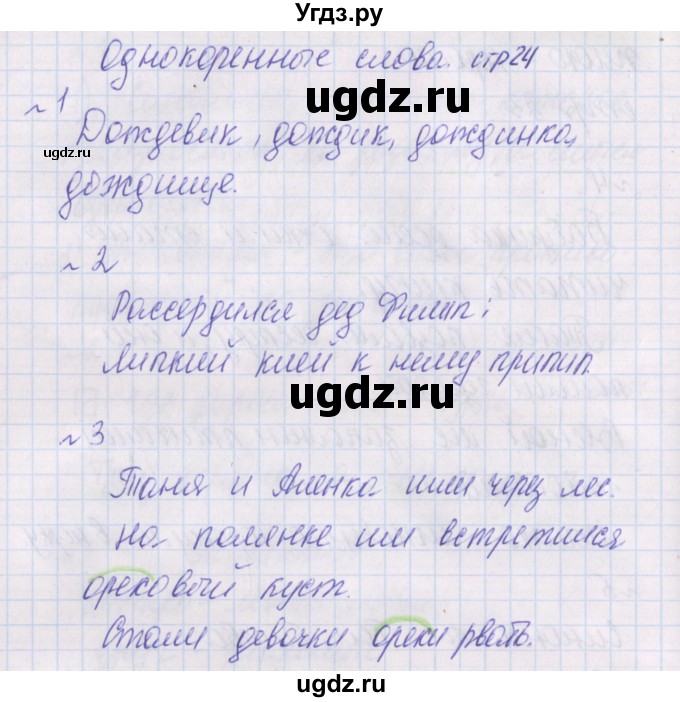 Угдз.ру
Однокоренные слова. стр24
ugdz.ru
~1
Дождевик, дождик, дождинка,
ugdz.ru
дождище.
~2
Рассердился дед Филип:
Липкий клей к нему прилип.
ugdz.ru
~3
Таня и Аленка шли через лес.
На полянке им встретился
ореховый куст.
ugdz.ru
Стали девочки орехи рвать.
ugdz.ru